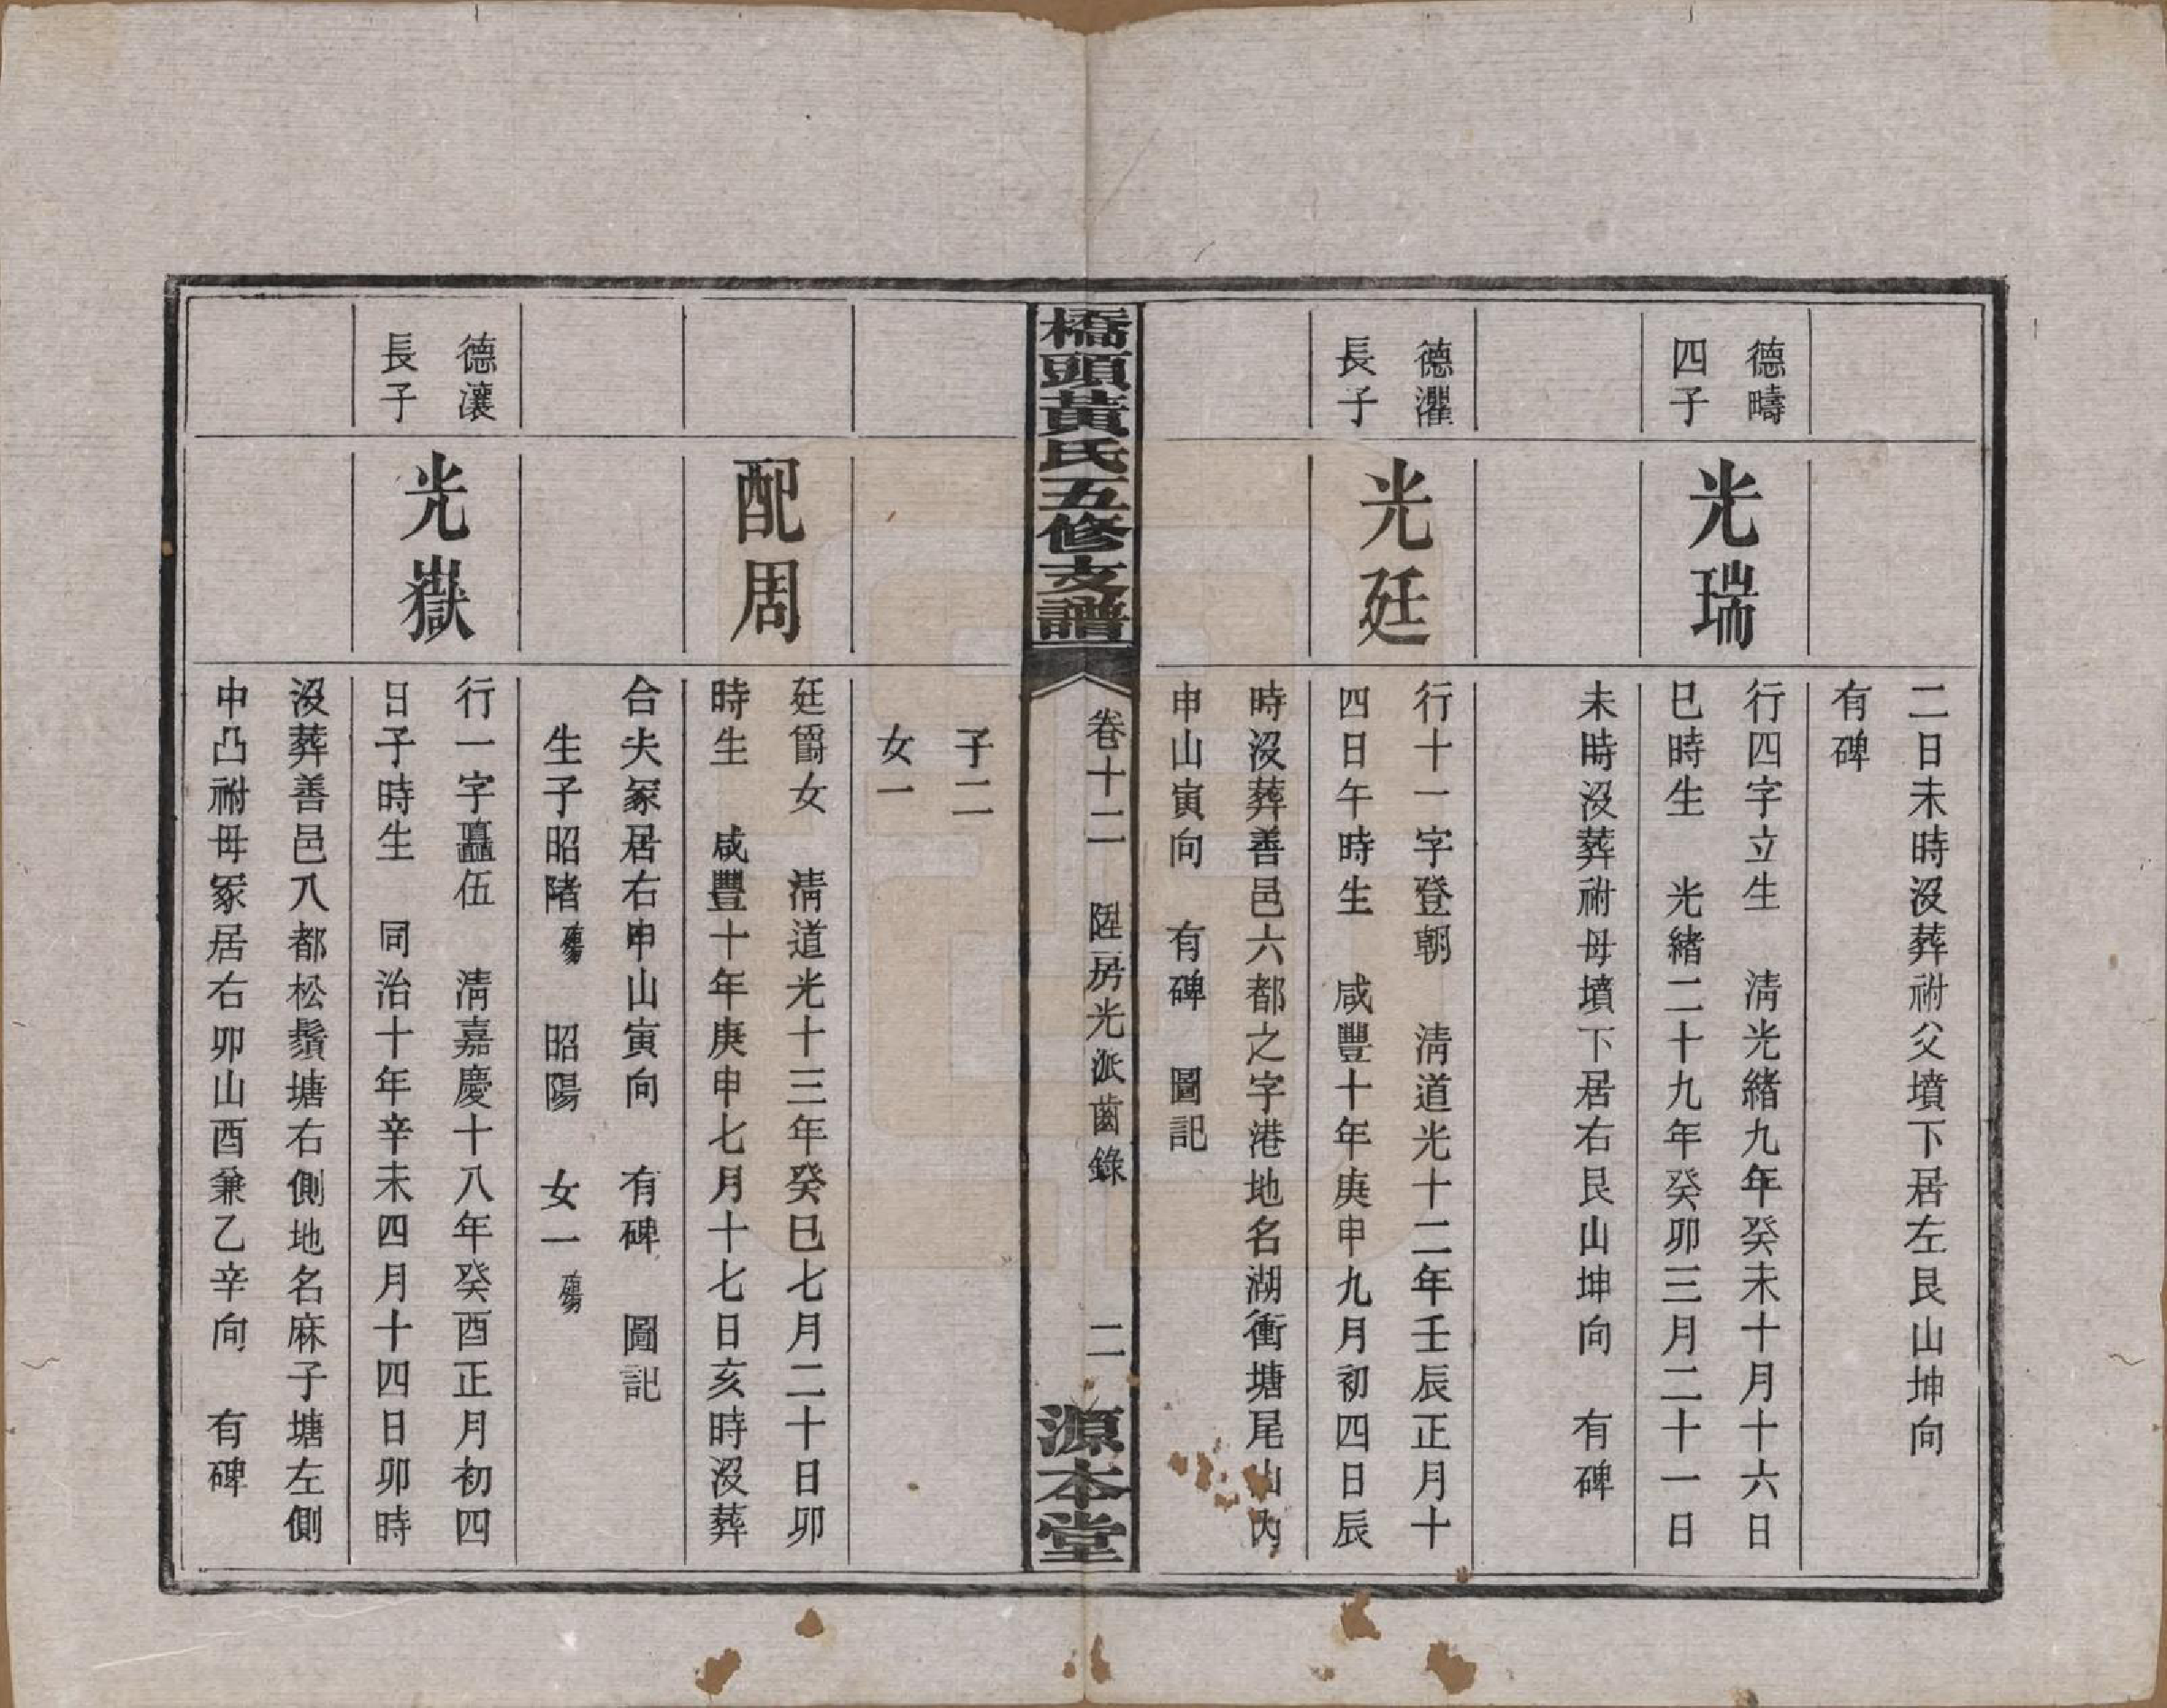 二日未時沒葬祔父墳下居左艮山坤向
有碑
德疇
四子
光瑞
行四字立生　清光緒九年癸未十月十六日
巳時生　光緒二十九年癸卯三月二十一日
未時沒葬祔母墳下居右艮山坤向　有碑
德濯
長子
光廷
行十一字登朝　清道光十二年壬辰正月十
四日午時生　咸豐十年庚申九月初四日辰
時沒葬善邑六都之字港地名湖衝塘尾山內
申山寅向　有碑　圖記
橋頭黃氏五修支譜
卷十二　陞房光派齒錄　二
源本堂
子二
女一
配周
廷爵女　清道光十三年癸巳七月二十日卯
時生　咸豐十年庚申七月十七日亥時沒葬
合夫冢居右申山寅向　有碑　圖記
生子昭睹殤　昭陽　女一殤
德瀼
長子
光嶽
行一字矗伍　清嘉慶十八年癸酉正月初四
日子時生　同治十年辛未四月十四日卯時
沒葬善邑八都松鬚塘右側地名麻子塘左側
中凸祔母冢居右卯山酉兼乙辛向　有碑